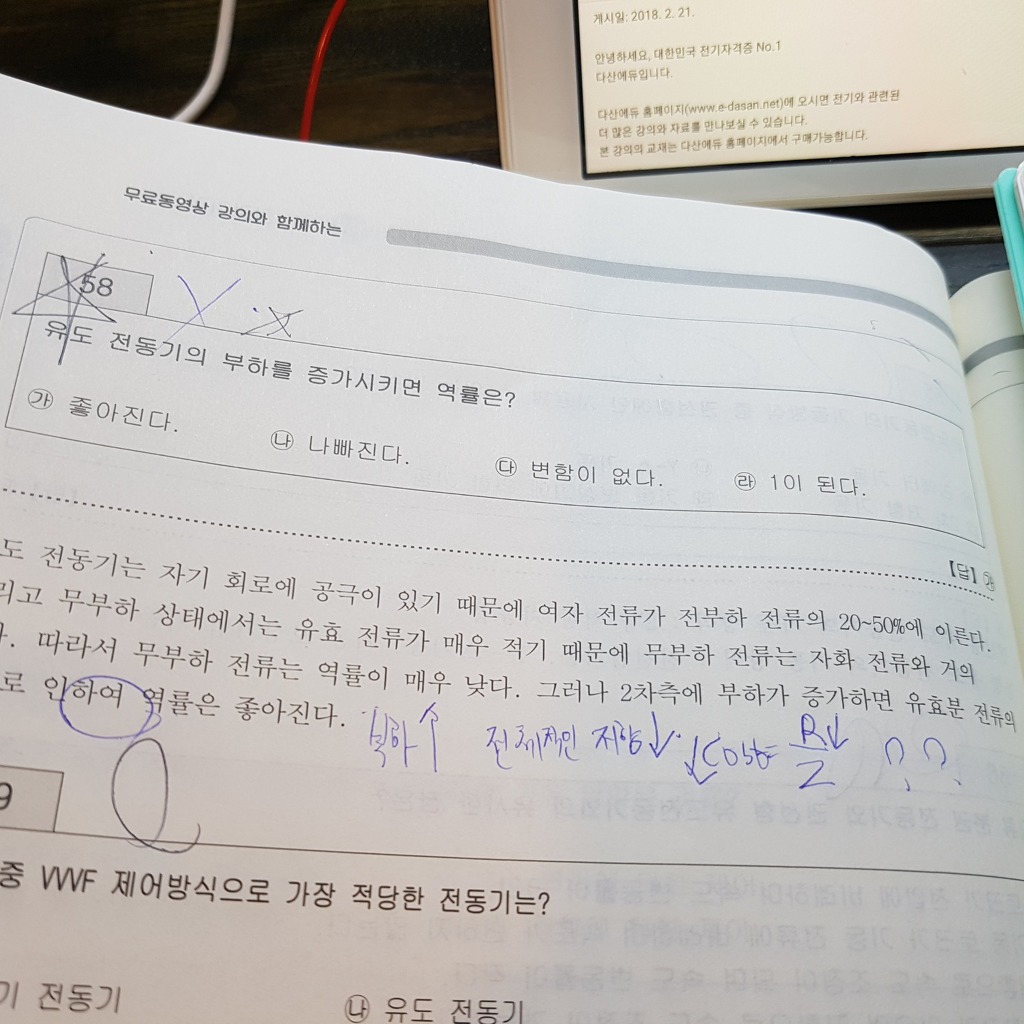 게시일: 2018. 2. 21.
안녕하세요, 대한민국 전기자격증 No.1
다산에듀입니다.
다산에듀 홈페이지(www.e-dasan.net)에 오시면 전기와 관련된
더 많은 강의와 자료를 만나보실 수 있습니다.
본 강의의 교재는 다산에듀 홈페이지에서 구매가능합니다.
무료동영상 강의와 함께하는
58
유도 전동기의 부하를 증가시키면 역률은?
㉮ 좋아진다. ㉯ 나빠진다. ㉰ 변함이 없다. ㉱ 1이 된다.
【답】㉮
도 전동기는 자기 회로에 공극이 있기 때문에 여자 전류가 전부하 전류의 20~50%에 이른다.
리고 무부하 상태에서는 유효 전류가 매우 적기 때문에 무부하 전류는 자화 전류와 거의
다. 따라서 무부하 전류는 역률이 매우 낮다. 그러나 2차측에 부하가 증가하면 유효분 전류의
로 인하여 역률은 좋아진다.
부하↑ 전체적인 저항↓. ↓cosθ= R↓/Z ??
9
중 VVVF 제어방식으로 가장 적당한 전동기는?
기 전동기 ㉯ 유도 전동기